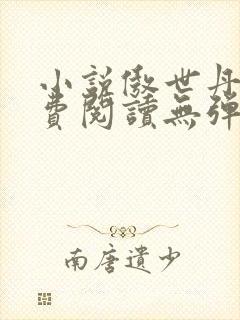 小説傲世丹
費閱讀無彈
南唐遺少